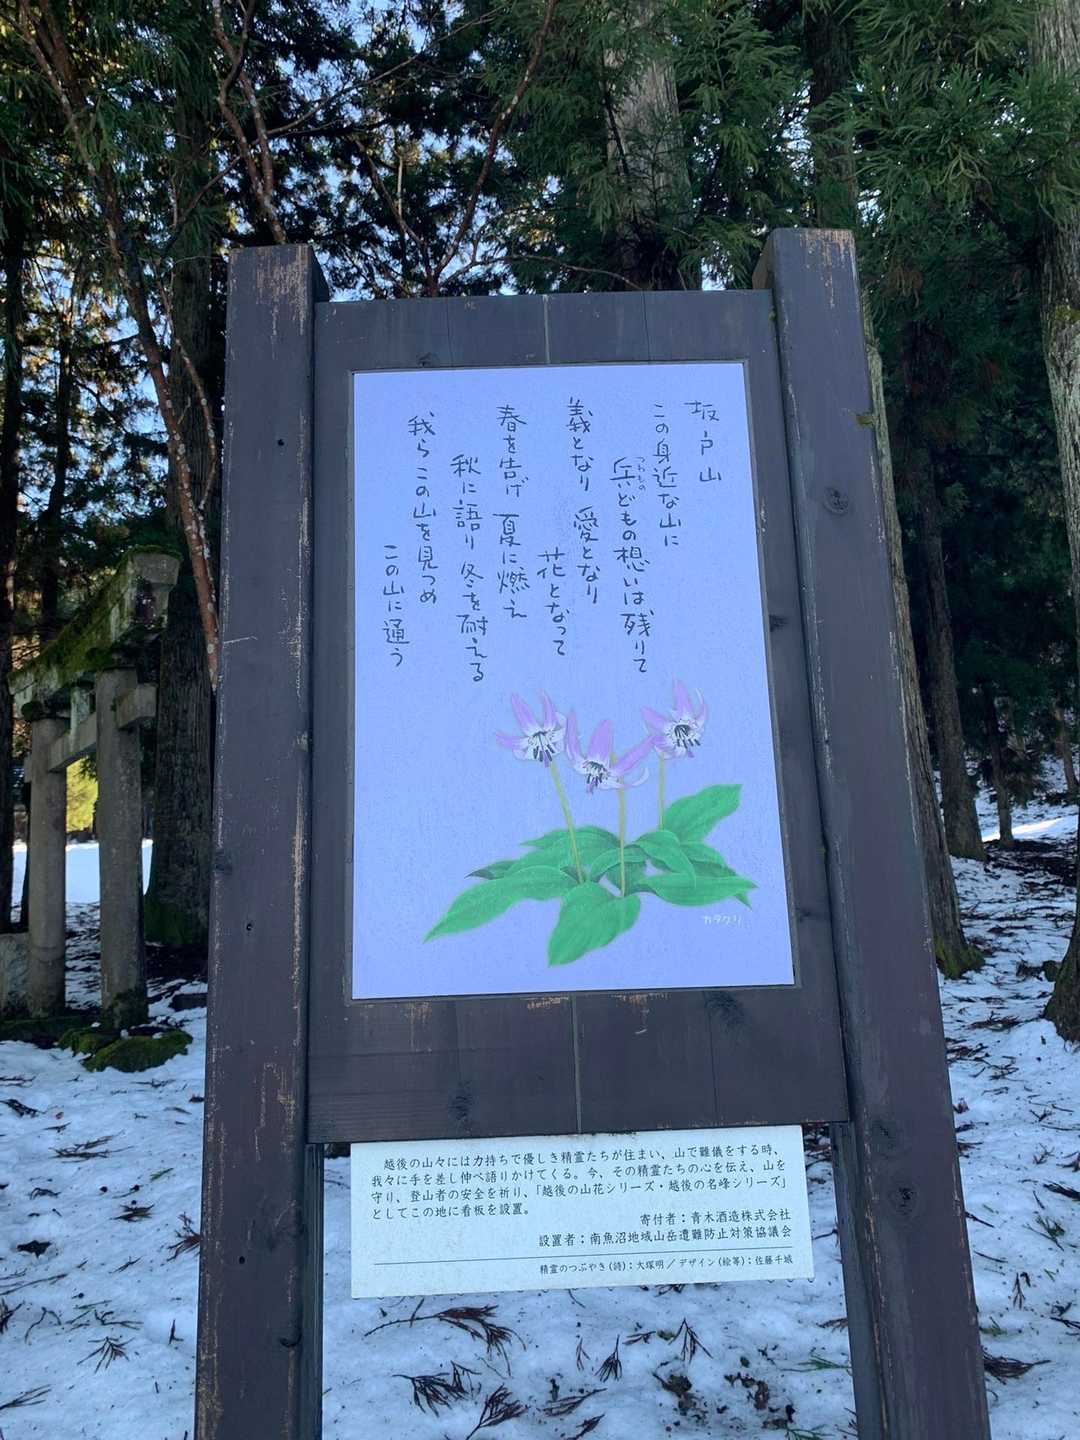 坂戸山
この身近な山に
つわもの
兵どもの想いは残りて
義となり 愛となり
花となって
春を告げ 夏に燃え
秋に語り 冬を耐える
我らこの山を見つめ
この山に通う
カタクリ
越後の山々には力持ちで優しき精霊たちが住まい、山で難儀をする時、
我々に手を差し伸べ語りかけてくる。今、その精霊たちの心を伝え、山を
守り、登山者の安全を祈り、「越後の山花シリーズ・越後の名峰シリーズ」
としてこの地に看板を設置。
寄付者：青木酒造株式会社
設置者：南魚沼地域山岳遭難防止対策協議会
精霊のつぶやき(詩)：大塚明／デザイン(絵等)：佐藤千城